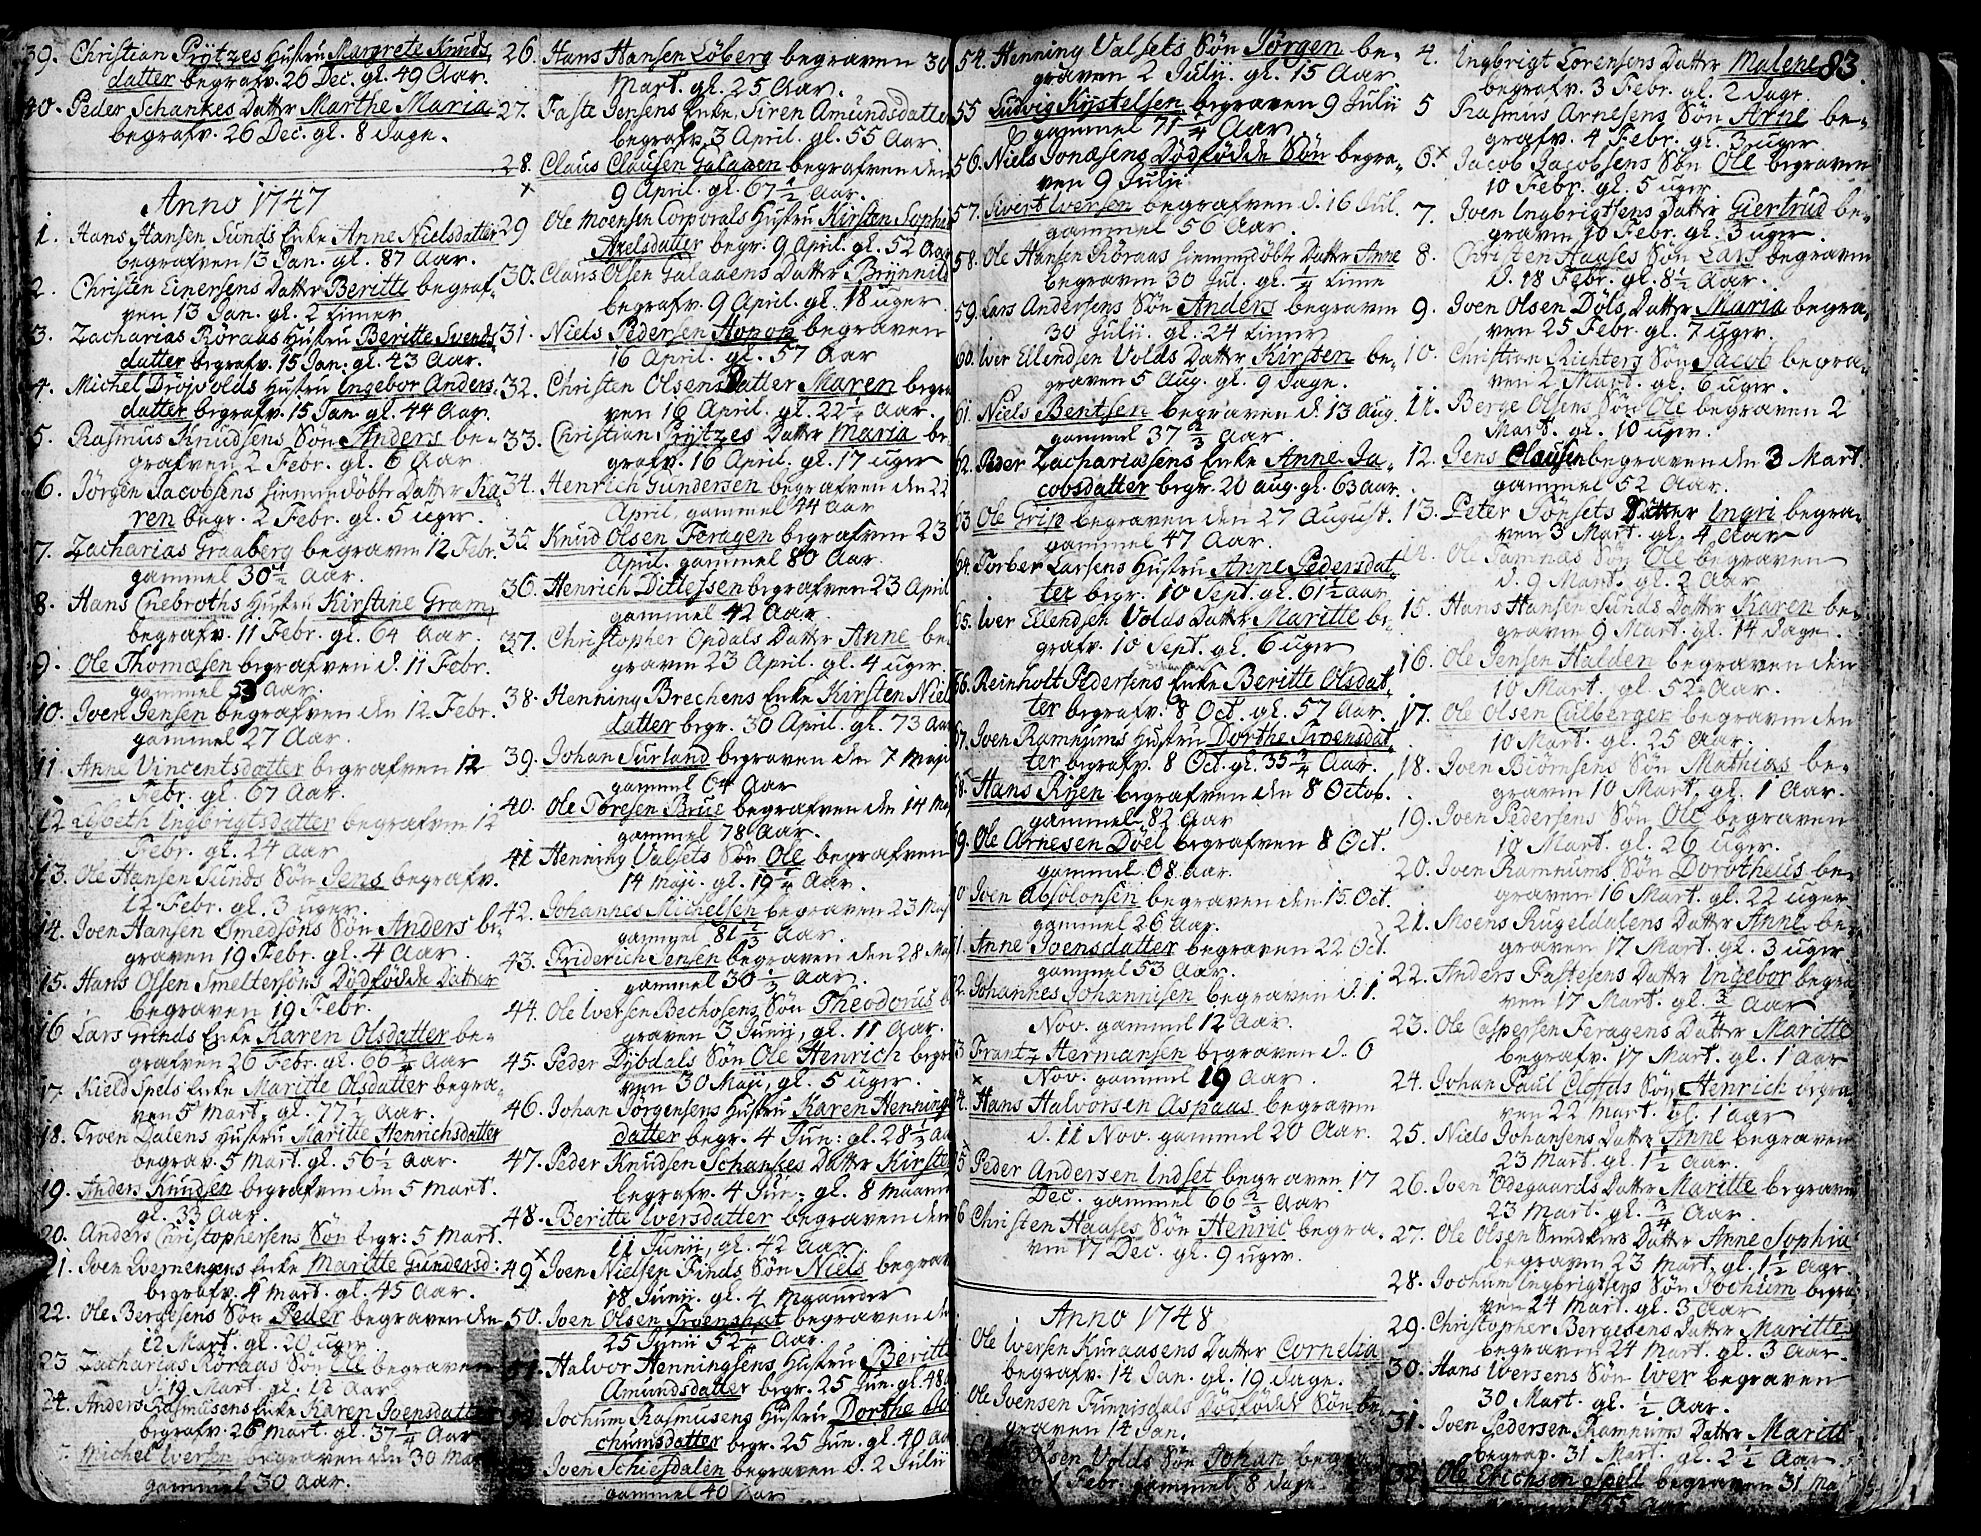 39. Christian Prÿtzes Hustru Margrete Knuds
datter begrafv. 26 Dec. gl. 49 Aar.
40. Peder Schankes Datter Marthe Maria
begrafv. 26 Dec. gl. 8 dage.
Anno 1747
1. Hans Hansen Sunds Enke Anne Nielsdatter
begrafven 13 Jan. gl. 87 Aar.
2. Christen Einersens Datter Beritte begraf-
ven 13 Jan. gl. 2 timer
3. Zacharias Röraas Hustru Beritte Svends
datter begrafv. 15 Jan: gl. 43 Aar.
4. Michel Dröjvolds Hustru Ingebor Anders
datter begrafv. 15 Jan. gl. 44 Aar.
5. Rasmus Knudsens Søn Anders be-
grafven 2 Febr. gl. 6 Aar
6. Jörgen Jacobsens hiemmedöbte Datter Ka
ren begr. 2 Febr. gl. 5 uger.
7. Zacharias Graaberg begraven 12 Febr.
gammel 30 1/2 Aar.
8. Hans Cnebroths Hustru Kirstine Gram
begrafv. 11 Febr. gl. 64 Aar.
9. Ole Thomæsen begrafven d. 11 Febr.
gammel 53 Aar.
10. Joen Jensen begrafven den 12 Febr.
gammel 27 Aar.
11. Anne Vincentsdatter begrafven 12
Febr. gl. 67 Aar.
12 Lisbeth Ingbrigtsdatter begrafven 12
Febr. gl. 24 Aar
13. Ole Hansen Sunds Søn Jens begrafv.
12 Febr. gl. 3 uger.
14. Joen Hansen Smedsöns Søn Anders be-
graven 19 Febr. gl. 4 Aar.
15. Hans Olsen Smeltersöns Dödfödde Datter
begraven 19 Febr.
16 Lars Grinds Enke Karen Olsdatter be-
grafven 26 Febr. gl. 66 3/4 Aar
17. Kield Spels Enke Maritte Olsdatter begra-
ven 5 Mart. gl. 77 1/2 Aar.
18. Troen Dalens Hustru Maritte Henrichsdatter
begrav. 5 Mart. gl. 56 1/2 Aar.
19. Anders Knudsen begrafven den 5 Mart.
gl. 33 Aar.
20. Anders Christophersens Søn begr: 5 Mart.
21. Joen Evernengens Enke Maritte Gundersd:
begrafv. 4 Mart. gl. 45 Aar.
22. Ole Bergesens Søn Peder begraven den
12 Mart. gl. 20 uger
23 Zacharias Röraas Søn Ole begraven
d. 19 Mart. gl. 12 Aar
24. Anders Rasmusens Enke Karen Joensdatter
begrafv. 26 Mart. gl. 37 1/4 Aar
Michel Iversen begraven den 30 Mart
gammel 30 Aar.
26. Hans Hansen Löberg begraven 30
Mart. gl. 25 Aar.
27. Faste Jensens Enke, Siren Amundsdatter
begrafv. 3 April. gl. 55 Aar.
28. Claus Clausen Galaaen begrafven den
9 April. gl. 67 1/2 Aar.
29 Ole Moensen Corporals Hustru Kirsten Sophia
Axelsdatter begr. 9 April. gl. 52 Aar
30. Claus Olsen Galaaens Datter Brynnild
begrafv. 9 April. gl. 18 uger
31. Niels Pedersen Honon begraven
16 April. gl. 57 Aar
32. Christen Olsens Datter Maren begra
ven 16 April. gl. 22 1/2 Aar.
33. Christian Prÿtzes Datter Maria be-
grafv. 16 April. gl. 17 uger
34. Henrich Gundersen begrafven den 22
April. gammel 44 Aar
35. Knud Olsen Feragen begrafven 23
April. gammel 80 Aar.
36. Henrich Ditlefsen begrafven 23 April
gammel 42 Aar.
37. Christopher Opdals Datter Anne be
graven 23 April. gl. 4 uger.
38. Henning Brechens Enke Kirsten Niels
datter begr. 30 April. gl. 73 Aar
39. Johan Surland begraven den 7 Maji
gammel 64 Aar
40. Ole Toresen Brue begrafven den 14 Maj
gammel 78 Aar.
41 Henning Valsets Søn Ole begrafven
14 Maji. gl. 19 1/4 Aar.
42. Johannes Michelsen begraven 23 Maj
gammel 81 2/3 Aar.
43. Friderich Jensen begraven den 28 Maj
gammel 30 1/3 Aar.
44. Ole Iversen Bechosens Søn Theodorus b
graven 3 Junij, gl. 11 Aar.
45. Peder Dybdals Søn Ole Henrich begra
ven 30 Maji, gl. 5 uger.
46. Johan Jörgensens Hustru Karen Hennings
datter begr. 4 Jun: gl. 28 1/3 Aar
47. Peder Knudsen Schankes Datter Kirsten
begrafv. 4 Jun: gl. 8 maaned
48. Beritte Iversdatter begraven den
11 Junii, gl. 42 Aar
49 Joen Nielsen Finds Søn Niels begrav
18 Junii. gl. 4 Maaneder
50. Joen Olsen Troenshat begraven den
25 Junii 52 1/2 Aar.
51. Halvor Henningsens Hustru Beritte
Amundsdatter begr. 25 Jun. gl. 48
Jochum Rasmusens Hustru Dorthe Jo
chumsdatter begr. 25 Jun. gl. 40 Aar
Joen Schiefdalen begraven d. 2 Julii
gammel 40 Aar
54. Henning Valsets Søn Jörgen be-
graven 2 Julii. gl. 15 Aar
55 Ludvig Kystelsen begraven 9 Julii
gammel 71 1/4 Aar
56. Niels Jonæsens Dödfödde Søn begra-
ven 9 Julii
57. Sivert Iversen begrafven d. 16 Jul.
gammel 56 Aar.
58. Ole Hansen Röraas hiemmedöbte Datter Anne
begraven 30 Jul. gl. 1/4 time
59. Lars Andersens Søn Anders begraven
30 Julii. gl. 24 timer
60. Iver Ellendsen Volds Datter Kirsten be-
graven 5 Aug. gl. 9 dage.
61. Niels Bentsen begraven d. 13 Aug.
gammel 37 2/3 Aar
62. Peder Zachariasens Enke Anne Ja-
cobsdatter begr. 20 aug. gl. 63 aar.
63 Ole Grip begraven den 27 August.
gammel 47 Aar.
64. Torber Larsens Hustru Anne Pedersdat-
ter begr. 10 Sept. gl. 61 1/2 aar
65. Iver Ellendsen Volds Datter Maritte be-
grafv. 10 Sept. gl. 6 uger
66. Reinholt Pedersens Enke Beritte Olsdat-
ter begrafv. 8 Oct. gl. 57 Aar.
67. Joen Ramnums Hustru Dorthe Troensdat-
ter begrafv. 8 Oct. gl. 35 3/4 Aar.
68. Hans Rijen begrafven den 8 Octob.
gammel 82 Aar
69. Ole Arnesen Döel begrafven 8 Oct.
gammel 68 aar.
70 Joen Absolonsen begraven den 15 Oct.
gammel 26 Aar.
71. Anne Joensdatter begraven 22 Oct.
gammel 53 Aar.
72. Johannes Johannisen begraven d. 1.
Nov. gammel 12 Aar.
73 Frantz Hermansen begraven d. 6
Nov. gammel 19 Aar.
74. Hans Halvorsen Aspaas begraven
d. 11 Nov. gammel 20 Aar.
75 Peder Andersen Indset begraven 17
Dec. gammel 66 2/3 Aar
76 Christen Haases Søn Henric begra-
ven 17 Dec. gl. 9 uger.
Anno 1748
Ole Iversen Kuraasens Datter Cornelia
begrafv. 14 Jan. gl. 19 dage.
Ole Joensen Tunnisdals Dödfödde Søn be
graven 14 Jan.
Olsen Volds Søn Johan begra
1 Febr. gammel 8 dage.
83.
4. Ingbrigt Lorensens Datter Malene
begrafv. 3 Febr. gl. 2 dage
5 Rasmus Arnesens Søn Arne be-
grafv. 4 Febr. gl. 3 uger.
6. Jacob Jacobsens Søn Ole begraven
10 Febr. gl. 5 uger
7. Joen Ingbrigtsens Datter Giertrud be-
graven 10 Febr. gl. 3 uger.
8. Christen Haases Søn Lars begraven
d. 18 Febr. gl. 8 1/2 Aar.
9. Joen Olsen Döls Datter Maria begra-
ven 25 Febr. gl. 7 uger.
10. Christian Richters Søn Jacob begra-
ven 2 Mart. gl. 6 uger.
11. Berge Olsens Søn Ole begraven 2
Mart. gl. 10 uger.
12. Jens Clausen begraven den 3 Mart.
gammel 52 Aar.
13. Peter Tönsets Datter Ingri begra-
ven 3 Mart. gl. 4 Aar
14. Ole Tamnæs Søn Ole begraven
d. 9 Mart. gl. 2 Aar
15. Hans Hansen Sunds Datter Karen be-
graven 9 Mart. gl. 14 dage.
16. Ole Jensen Halden begraven den
10 Mart. gl. 52 Aar.
17. Ole Olsen Culberger begraven den
10 Mart. gl. 25 Aar.
18. Joen Biörnsens Søn Mathias be-
graven 10 Mart. gl. 1 Aar.
19. Joen Pedersens Søn Ole begraven
10 Mart. gl. 26 uger.
20. Joen Ramnums Søn Dorotheus be-
graven 16 Mart. gl. 22 uger
21. Moens Rugeldalens Datter Anne be-
graven 17 Mart. gl. 3 uger.
22. Anders Fastesens Datter Ingebor begra
ven 17 Mart. gl. 3/4 Aar
23. Ole Caspersen Feragens Datter Maritte
begrafv. 17 Mart. gl. 1 Aar
24. Johan Paul Cloffds Søn Henrich begra-
ven 22 Mart. gl. 1 Aar
25. Niels Johansens Datter Anne begraven
23 Mart. gl. 1 1/2 Aar.
26. Joen Ödegaards Datter Maritte begraven
23 Mart. gl. 3/4 Aar.
27. Ole Olsen Sundters Datter Anne Sophia
begraven 23 Mart. gl. 1 1/2 Aar.
28. Jochum Ingbrigtsens Søn Jochum begra
ven 24 Mart. gl. 3 Aar
29. Christopher Bergesens Datter Maritte
begraven 24 Mart. gl. 3 Aar.
30. Hans Iversens Søn Iver begraven
30 Mart. gl. 1/2 Aar.
31. Joen Pedersen Ramnums Datter Maritte
begrav. 31 Mart. gl. 2 1/2 Aar
32. Ole Erichsen Spell begraven 31 Ma